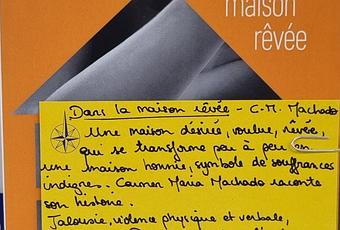 maison
rêvée
Dans la maison rêvée - C.M. Machado
Une maison désirée, voulue, rêvée,
qui se transforme peu à peu en
une maison honnie, symbole de souffrances
indignes. Carmen Maria Machado raconte
son histoire.
Jalousie, violence physique et verbale,